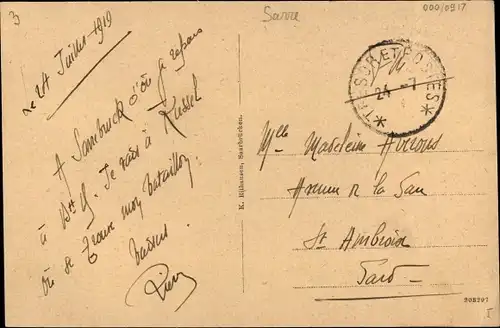 3
Sarre
000/0917
Le 24 Juillet 1919
A Sarrebruck d'où je repars
à . Je vais à Kussel
où se trouve mon bataillon.
Baisers
K. Eijkhausen, Saarbrücken.
TRESOR ET POSTES
24 - 7
Mlle Madeleine
Avenue de la Gare
St Ambroix
Gard